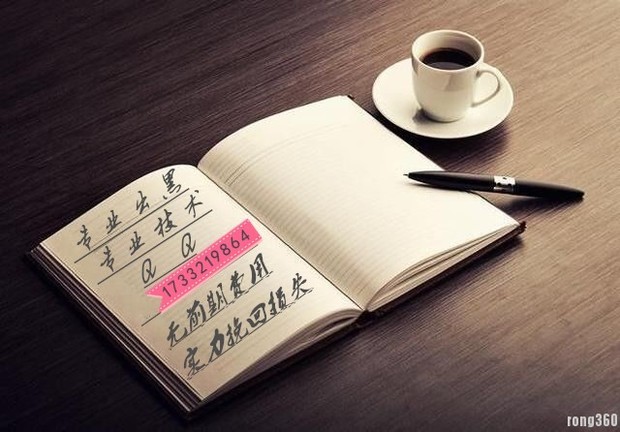 专业出黑
专业技术
QQ
1733219864
无前期费用
实力挽回损失
rong360